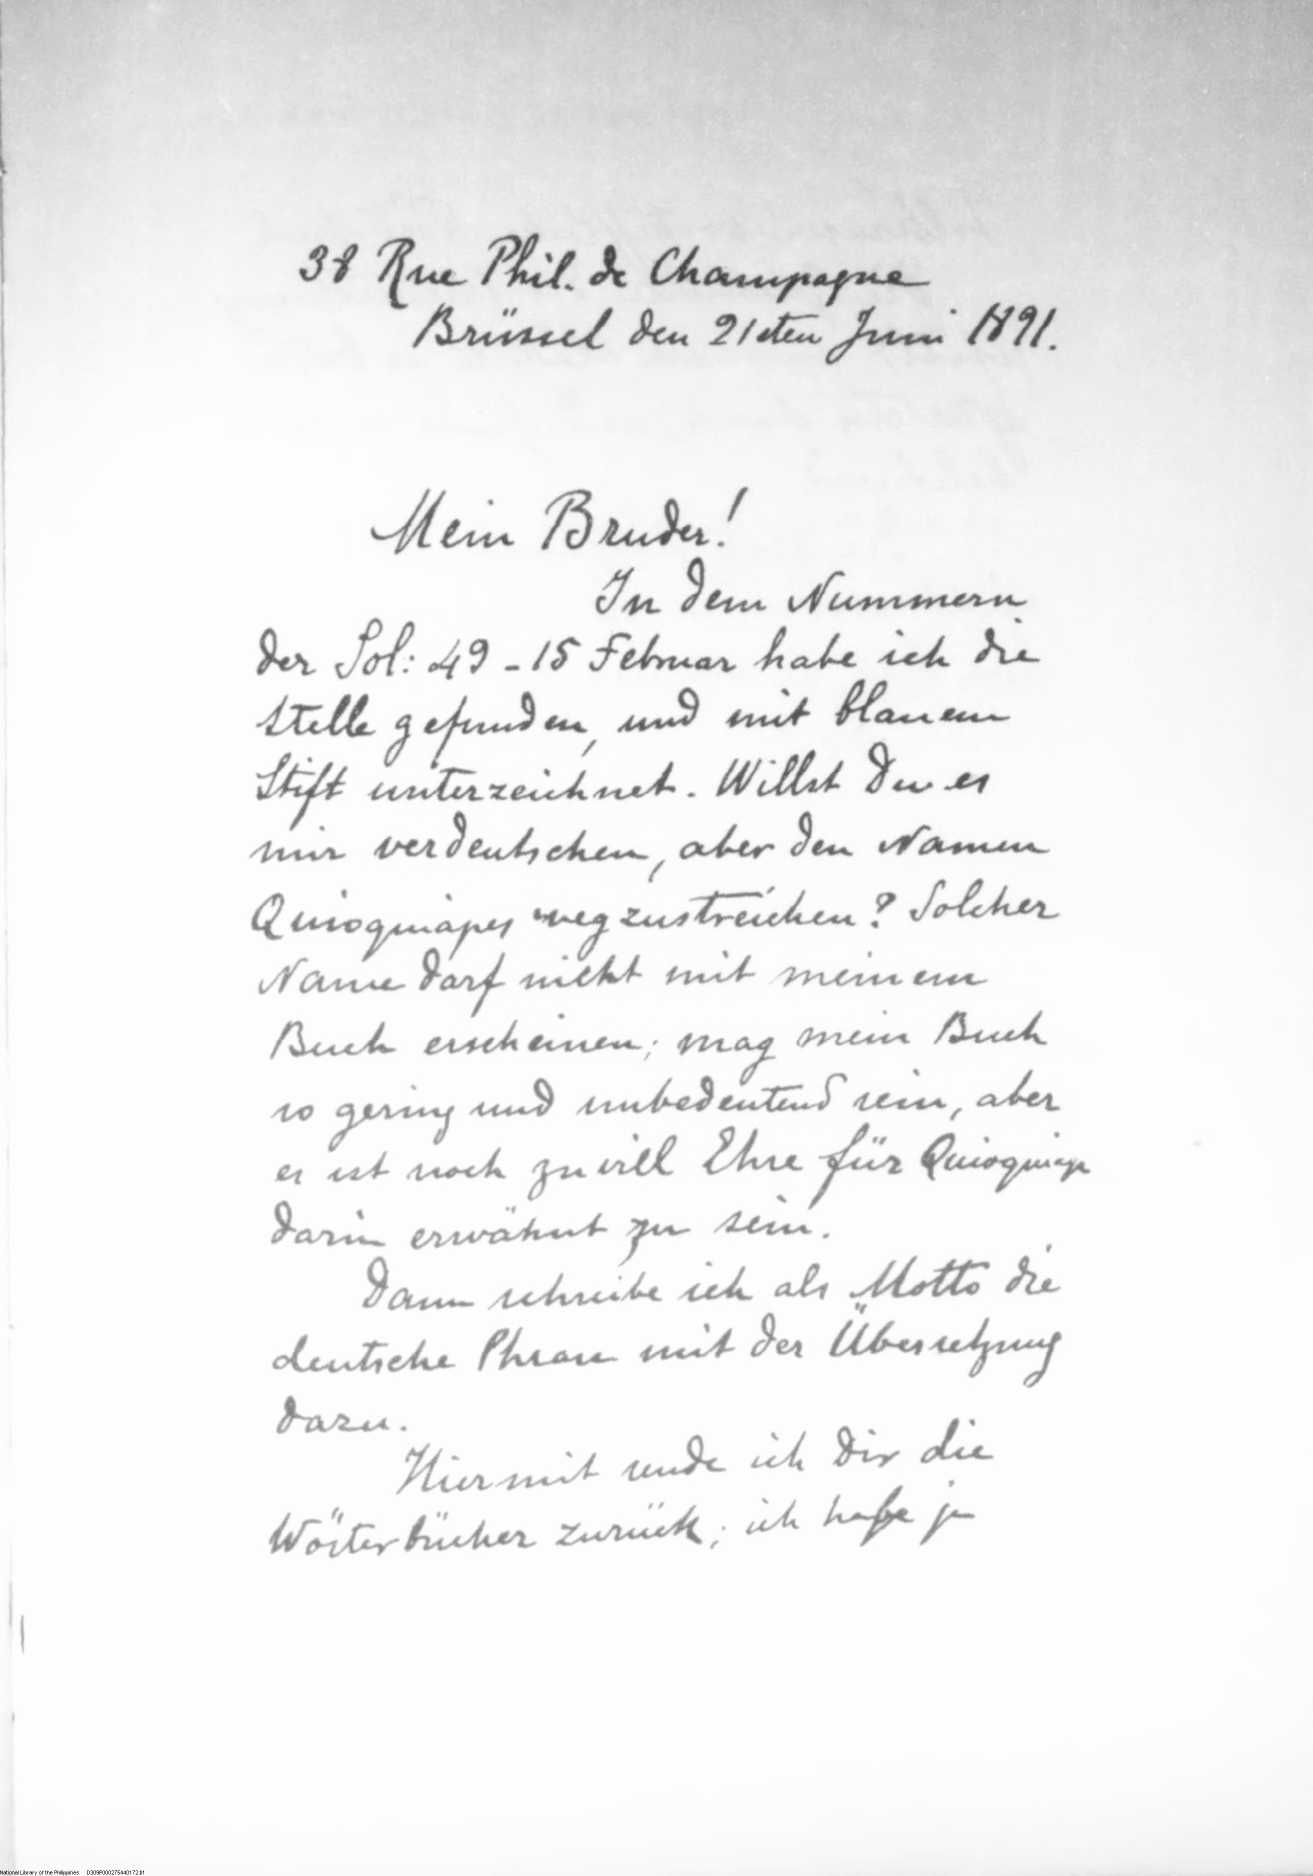 38 Rue Phil. de Champagne
Brüssel den 21sten Juni 1891.
Mein Bruder!
In dem Nummern
der Sol: 49 - 15 Februar habe ich die
Stelle gefunden, und mit blauem
Stift unterzeichnet. Willst Du es
mir verdeutschen, aber den Namen
Quioquiapes wegzustreichen? Solcher
Name darf nicht mit meinem
Buch erscheinen; mag mein Buch
so gering und unbedeutend sein, aber
es ist noch zu viel Ehre für Quioquiap
darin erwähnt zu sein.
Dann schreibe ich als Motto die
deutsche Phrase mit der Übersetzung
dazu.
Hiermit sende ich Dir die
Wörterbücher zurück; ich habe ja
National Library of the Philippines